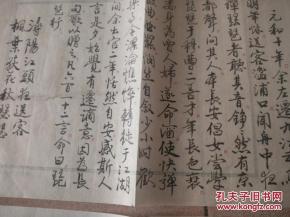 元和十年余左遷九江
明年秋送客湓浦口聞舟中夜
彈琵琶者聽其音錚々然有京
都聲問其人本長安倡女嘗學
琵琶于穆曹二善才年長色衰
委身為賈人婦遂命酒使快彈
數曲曲罷憫然自叙少小時歡
樂事今漂淪憔悴轉徙于江湖
間余出官二年恬然自安感斯人
言是夕始覺有遷謫意因為長
句歌以贈之凡六百一十二言命曰琵
琶行
潯陽江頭夜送客
楓葉荻花秋瑟瑟